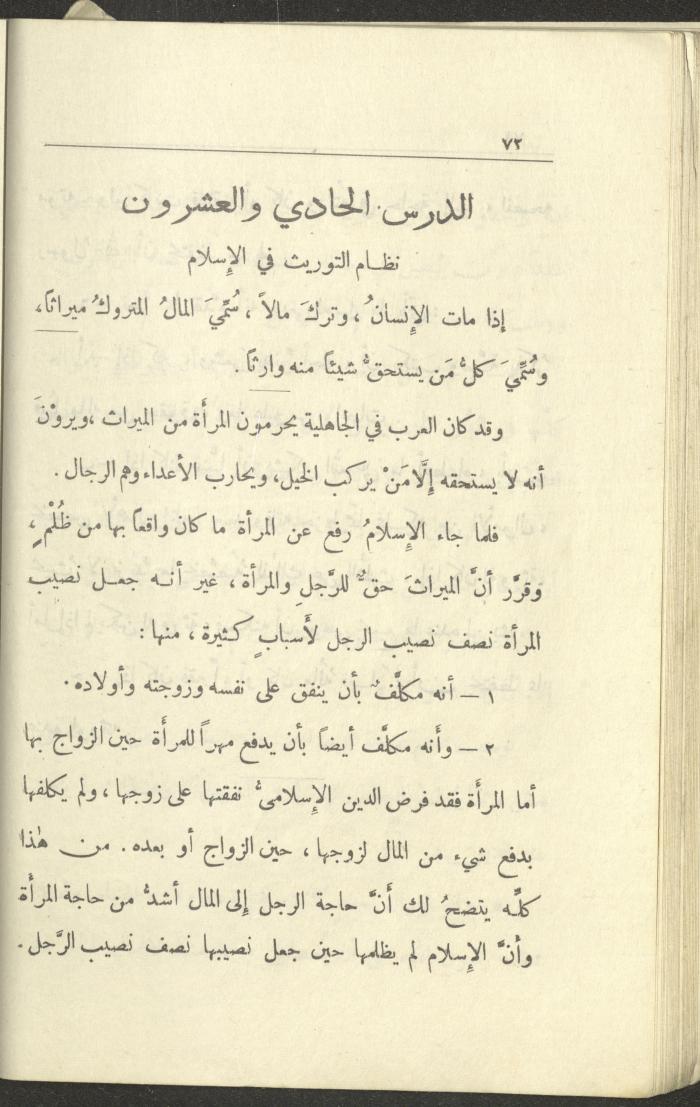 ٧٢
الدرس الحادي والعشرون
نظام التوريث في الإِسلام
إذا مات الإِنسانُ ، وتركَ مالاً ، سُمِّيَ المالُ المتروكُ ميراثاً،
وسُمِّيَ كلُّ مَن يستحقُّ شيئاً منه وارثاً .
وقد كان العرب في الجاهلية يحرمون المرأة من الميراث ،ويروْنَ
أنه لا يستحقه إِلَّا مَنْ يركب الخيل، ويحارب الأعداء وهم الرجال .
فلما جاء الإِسلامُ رفع عن المرأة ما كان واقعاً بها من ظُلْمٍ ،
وَقرَّر أنَّ الميراثَ حقٌّ للرَّجلِ والمرأة ، غير أنه جعل نصيب
المرأة نصف نصيب الرجل لأَسبابٍ كثيرة ، منها :
١ – أنه مكلَّفٌ بأن ينفق على نفسه وزوجته وأولاده .
٢ – وأَنه مكلَّف أيضاً بأن يدفع مهراً للمرأَة حين الزواج بها
أما المرأَة فقد فرض الدين الإِسلاميُّ نفقتها على زوجها ، ولم يكلفها
بدفع شيء من المال لزوجها ، حين الزواج أو بعده . من هٰذا
كلِّه يتضحُ لك أَنَّ حاجة الرجل إِلى المال أشدُّ من حاجة المرأَة
وأَنَّ الإِسلام لم يظلمها حين جعل نصيبها نصف نصيب الرَّجل .